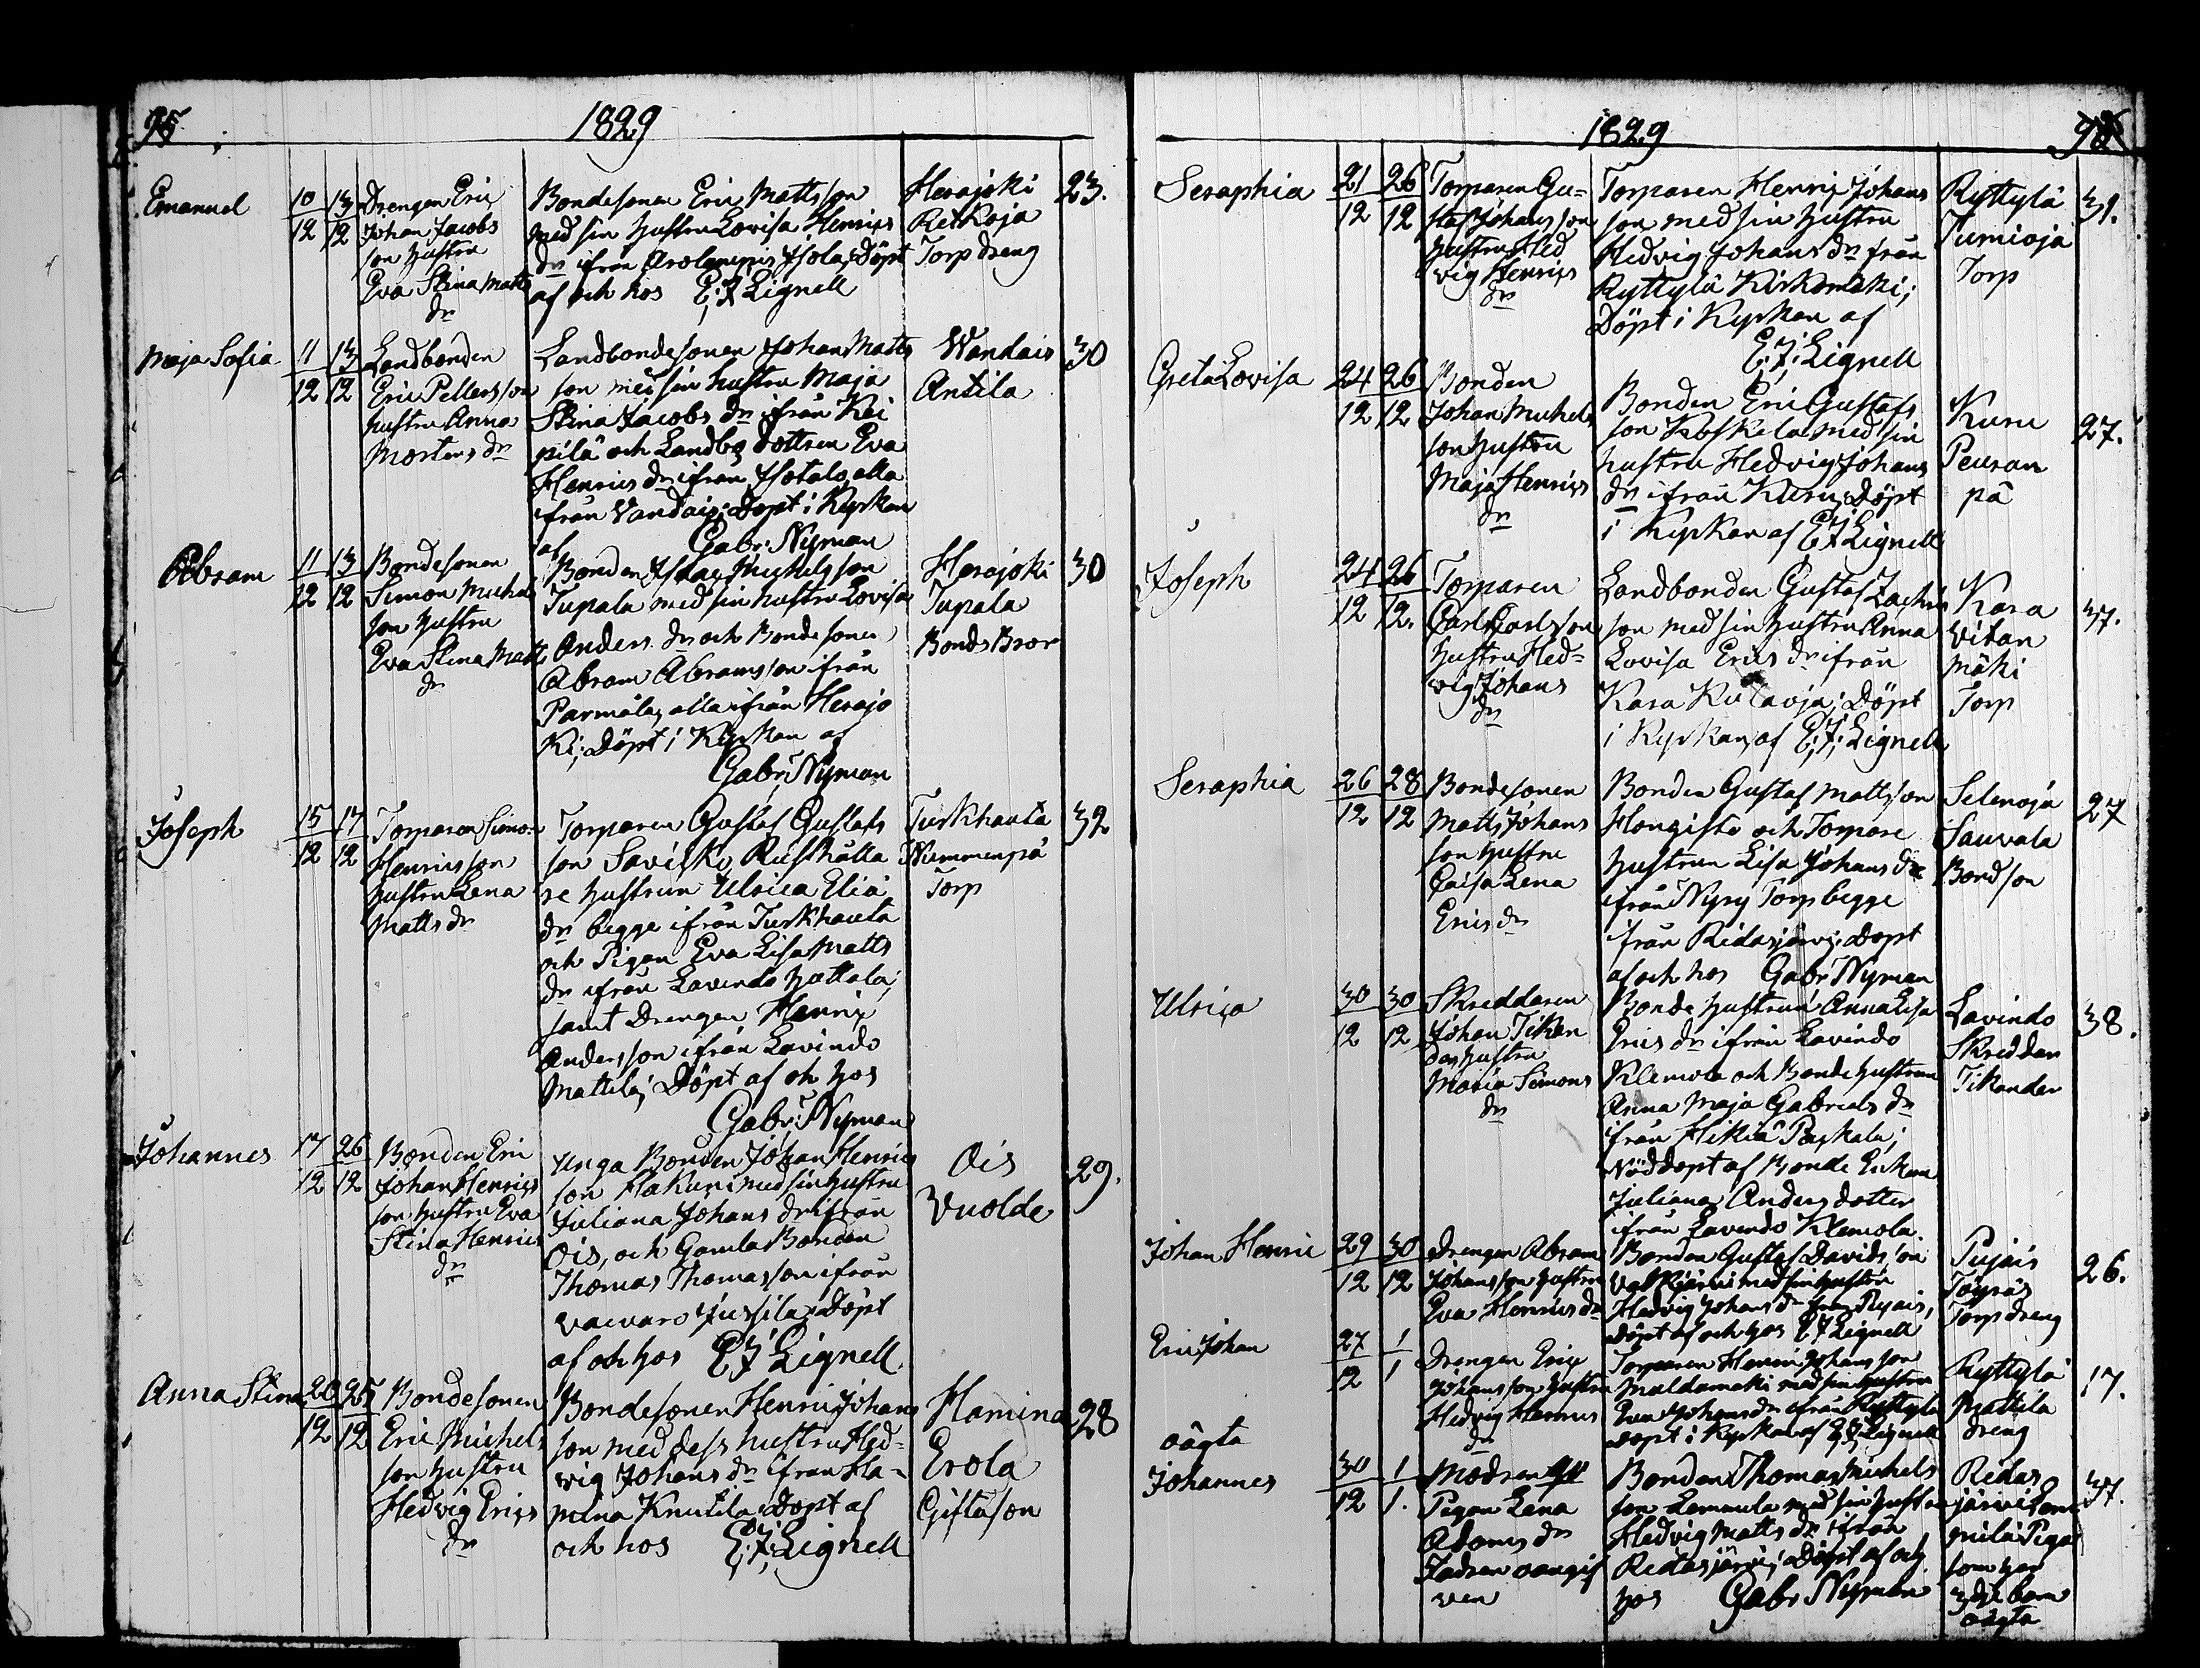 95
1829
Emanuel
10 13
12 12
Drengen Eric
Johan Jacobs
son hustru
Eva Stina Matts
dr
Bondesonen Eric Mattsson
med sin hustru Lovisa Henrics
dr ifrån Arolampi Isola; Döpt
af och hos E; J Lignell
Herajoki
Retkoja
Torp dreng
23.
Maja Sofia
11 13
12 12
Landbonden
Eric Pettersson
hustru Anna
Mortens dr
Landbondesonen Johan Matts
son med sin hustru Maja
Stina Jacobs dr ifrån Kei
pilä och Landbo dottren Eva
Henrics dr ifrån Isotalo, alla
ifrån Vandais; Döpt i Kyrkan
af Gabr: Nyman
Wandais
Antila
30
Abram
11 13
12 12
Bondesonen
Simon Michels
son hustru
Eva Stina Matts
dr
Bonden Isaac Michelsson
Tupala med sin hustru Lovisa
Anders dr och Bondesonen
Abram Abramsson ifrån
Parmala, alla ifrån Herajo
ki; Döpt i Kyrkan af
Gabr: Nyman
Herajoki
Tupala
Bonds Bror
30
Joseph
15 17
12 12
Torparen Simon
Henricsson
hustru Lena
Matts dr
Torparen Gustaf Gustafs
son Rusthålla
re hustrun Ulrica Elia
dr begge ifrån Turkhauta
och Pigan Eva Lisa Matts
dr ifrån Lavindo Hattala;
samt Drengen Henric
Andersson ifrån Lavindo
Mattila; Döpt af och hos
Gabr: Nyman
Turkhauta
Nummenpä
Torp
32
Johannes
17 26
12 12
Bonden Eric
Johan Henrics
son hustru Eva
Stina Henrics
dr
Unga Bonden Johan Henrics
son Hakuni med sin hustru
Juliana Johans dr ifrån
Ois, och Gamla Bonden
Thomas Thomasson ifrån
Jussila; Döpt
af och hos E J Lignell.
Ois
Vuolde
29.
Anna Stina
20 25
12 12
Bondesonen
Eric Michels
son hustru
Hedvig Erics
dr
Bondesonen Henric Johans
son med dess hustru Hed-
vig Johans dr ifrån Ha-
mina Knutila; Döpt af
och hos E; J; Lignell
Hamina
Erola
Gifta son
28
1829
Seraphia
21 26
12 12
Torparen Gu-
staf Johansson
hustru Hed
vig Henrics
dr
Torparen Henric Johans
son med sin hustru
Hedvig Johans dr från
Ryttylä Kirkomäki;
Döpt i Kyrkan af
E; J; Lignell
Ryttylä
Jumioja
Torp
31.
Greta Lovisa
24 26
12 12
Bonden
Johan Michels
son hustru
Maja Henrics
dr
Bonden Eric Gustafs
son Koskela med sin
hustru Hedvig Johans
dr ifrån Kuru; Döpt
i Kyrkan af E J Lignell
Kuru
Peuran
pä
27.
Joseph
24 26
12 12.
Torparen
Carl Carlsson
hustru Hed-
vig Johans
dr
Landbonden Gustaf Zachris
son med sin hustru Anna
Lovisa Erics dr ifrån
Kara Kutavja; Döpt
i Kyrkan, af E; J; Lignell
Kara
Vitan
mäki
Torp
37.
Seraphia
26 28
12 12
Bondesonen
Matts Johans
son hustru
Caisa Lena
Erics dr
Bonden Gustaf Mattsson
Hongisto och Torpare
hustrun Lisa Johans dr
ifrån Nyry Torp begge
från Ridasjärvi; Döpt
af och hos Gabr: Nyman
Selenoja
Sauvala
Bondson
27
Ulrica
30 30
12 12
Skreddaren
Johan Tikan
der hustru
Maria Simons
dr
Bonde hustrun Anna Lisa
Erics dr ifrån Lavindo
Klemola och Bonde hustrun
Anna Maja Gabriels dr
ifrån Hikiä Paskala;
Nöddöpt af Bonde Enkan
Juliana Anders dotter
ifrån Lavindo Klemola.
Lavindo
Skreddar
Tikander
38.
Johan Henric
29 30
12 12
Drengen Abram
Johansson hustru
Eva Henrics dr
Bonden Gustaf Davidsson
Valkjärvi med sin hustru
Hedvig Johans dr från Pujais,
Döpt af och hos E J Lignell
Pujais
Töyräs
Torp dreng
26.
Eric Johan
27 1
12 1
Drengen Eric
Johansson hustru
Hedvig Henrics
dr
Torparen Henric Johansson
Muldamäki med sin hustru
Eva Johans dr ifrån Ryttylä
Döpt i Kyrkan af E J Lignell
Ryttylä
Mattila
dreng
17.
oägta
Johannes
30 1
12 1.
Modren
Pigan Lena
Adams dr
Fadren oangif
ven
Bonden Thomas Michels
son Lemmula med sin hustru
Hedvig Matts dr ifrån
Ridasjärvi; Döpt af och
hos Gabr: Nyman
Ridas
järvi
Piga
som har
3dje barn
oägta
37.